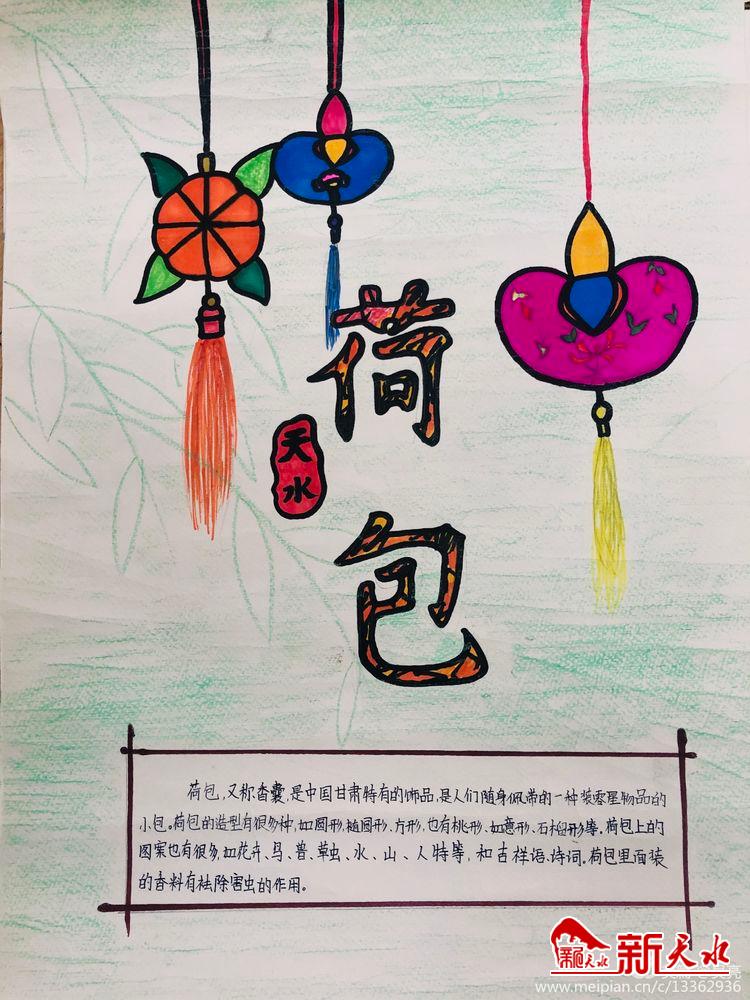 荷
天水
包
荷包，又称香囊，是中国甘肃特有的饰品，是人们随身佩带的一种装零星物品的
小包。荷包的造型有很多种，如圆形、椭圆形、方形，也有桃形、如意形、石榴形等。荷包上的
图案也有很多，如花卉、鸟、兽、草虫、水、山、人特等，和吉祥语、诗词。荷包里面装
的香料有祛除害虫的作用。
新天水
www.meipian.cn/c/13362936